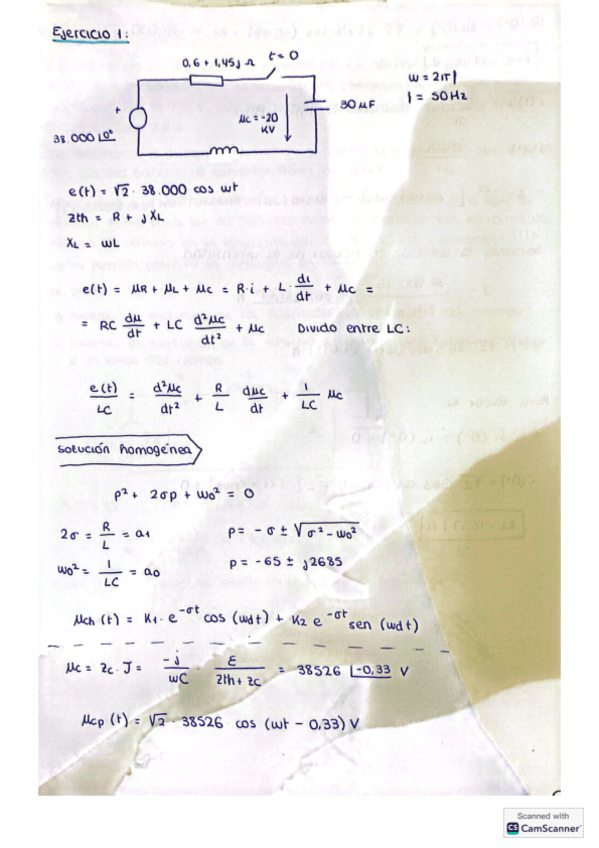 Ejercicio 1:
0,6 + 1,45j Ω
t = 0
w = 2πf
f = 50Hz
+
μc = -20 KV
30 μF
38.000 ∠0°
e(t) = √2 · 38.000 cos wt
Zth = R + j XL
XL = wL
e(t) = μR + μL + μc = R·i + L · di/dt + μc =
= RC dμ/dt + LC d²μc/dt² + μc Divido entre LC:
e(t)/LC = d²μc/dt² + R/L dμc/dt + 1/LC μc
solución homogénea
p² + 2σp + wo² = 0
2σ = R/L = a1
p = -σ ± √σ² - wo²
wo² = 1/LC = a0
p = -65 ± j2685
μch (t) = K1 · e^-σt cos (wdt) + K2 e^-σt sen (wdt)
μc = Zc · J = -j/wC · E/Zth + Zc = 38526 ∠-0,33 V
μcp (t) = √2 · 38526 cos (wt - 0,33) V
Scanned with
CS CamScanner